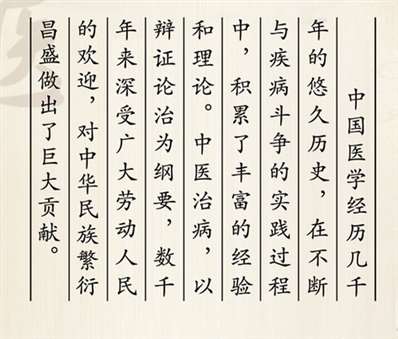 中国医学经历几千
年的悠久历史，在不断
与疾病斗争的实践过程
中，积累了丰富的经验
和理论。中医治病，以
辩证论治为纲要，数千
年来深受广大劳动人民
的欢迎，对中华民族繁衍
昌盛做出了巨大贡献。
医